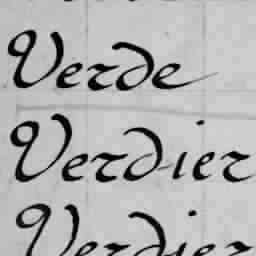 Verde
Verdier
Verdier